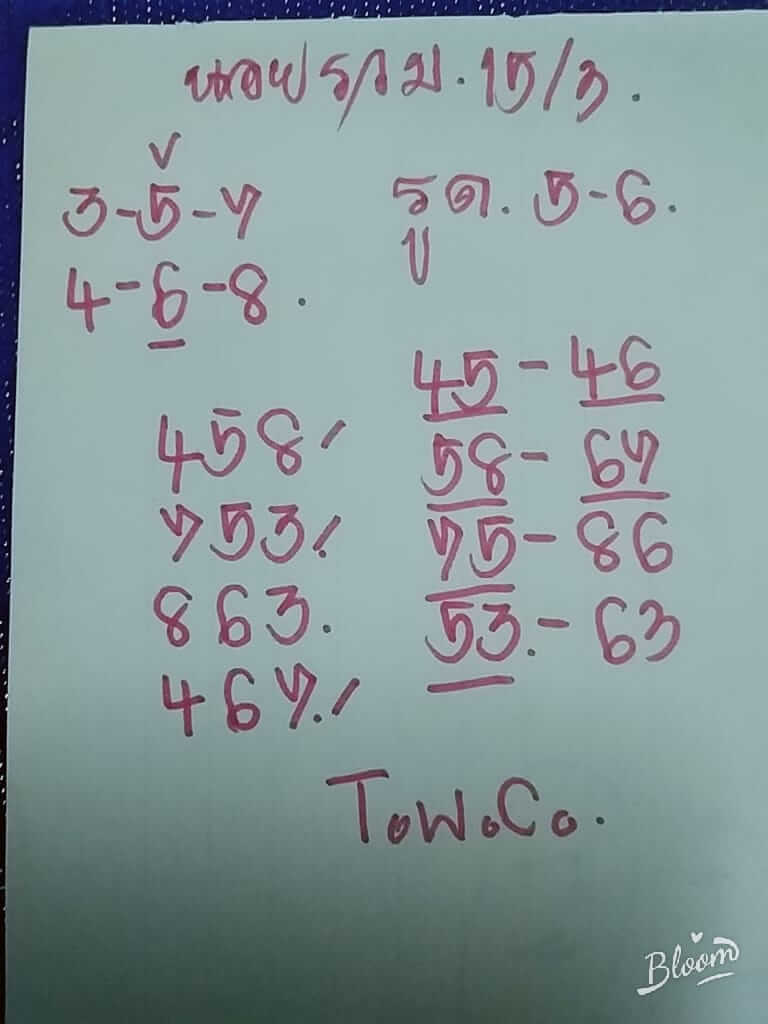 หอยราม. 15/3.
3-5-7
4-6-8.
รูด. 5-6.
458/
753/
863.
467./
45-46
58-67
75-86
53.-63
T.W.C.
Bloom